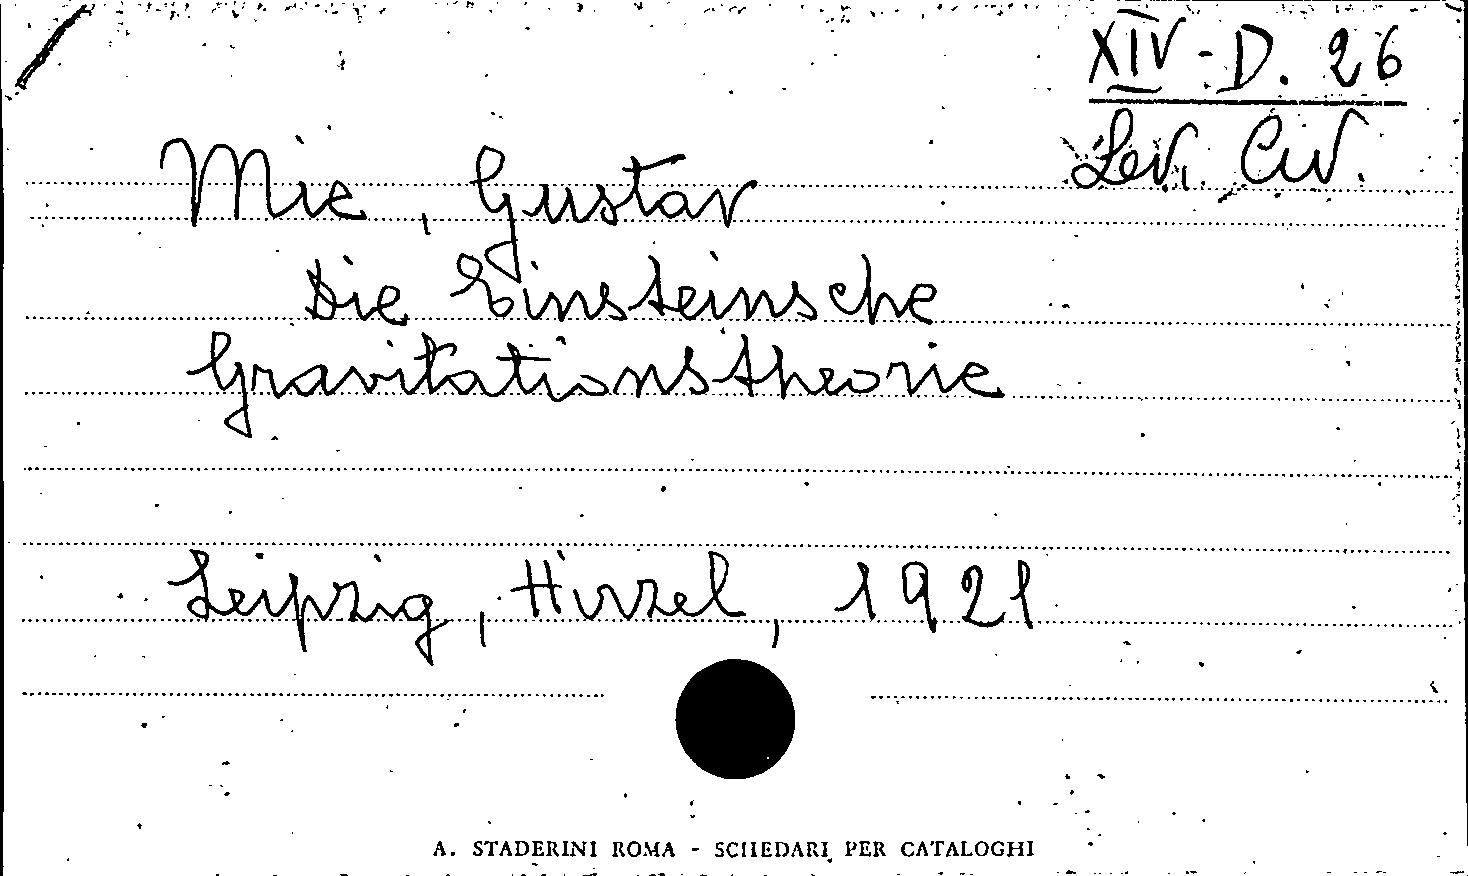 XIV - D. 26
Lev. Civ.
Mie, Gustav
Die Einsteinsche
Gravitationstheorie
Leipzig, Hirzel, 1921
A. STADERINI ROMA - SCHEDARI PER CATALOGHI